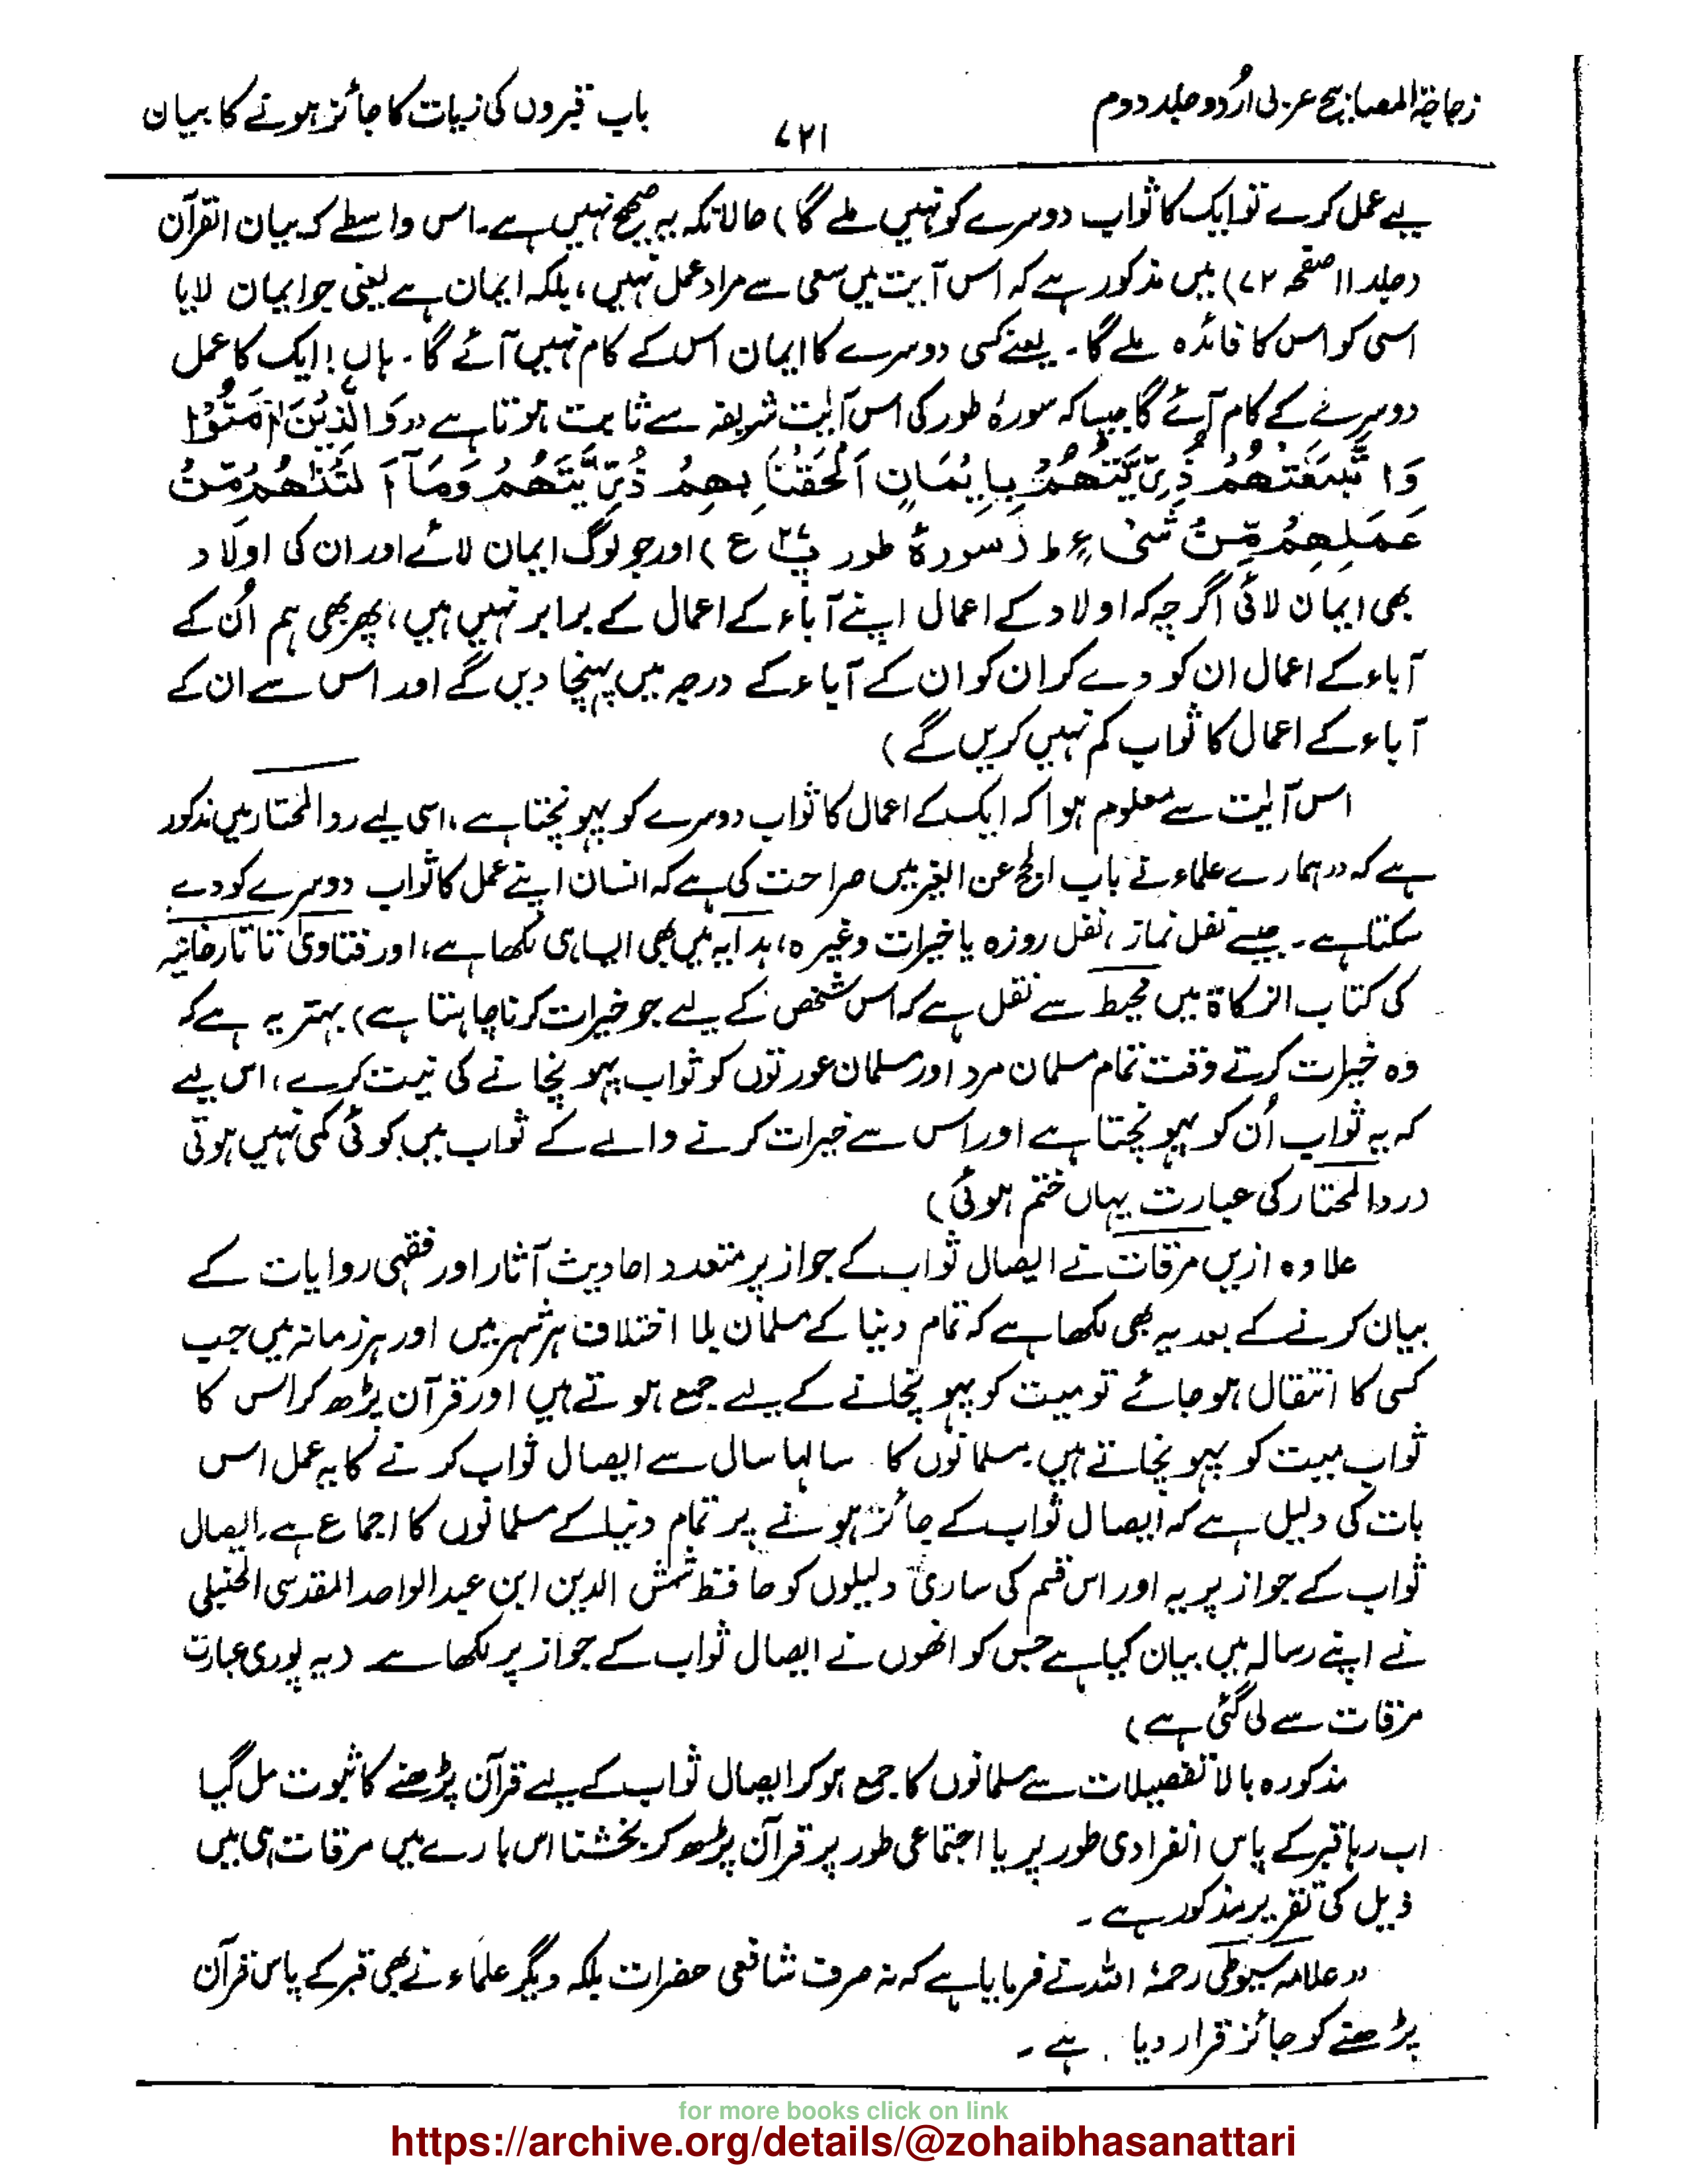 زجاجۃ المصابیح عربی اُردو جلد دوم
۷۲۱
باب قبروں کی زیات کا جائز ہونے کا بیان
لیے عمل کرے تو ایک کا ثواب دوسرے کو نہیں ملے گا) حالانکہ یہ صحیح نہیں ہے۔ اس واسطے کہ بیان القرآن
(جلد ۱۱ صفحہ ۷۲) میں مذکور ہے کہ اس آیت میں سعی سے مراد عمل نہیں، بلکہ ایمان ہے یعنی جو ایمان لایا
اسی کو اس کا فائدہ ملے گا۔ یعنے کسی دوسرے کا ایمان اس کے کام نہیں آئے گا۔ ہاں! ایک کا عمل
دوسرے کے کام آئے گا جیسا کہ سورۂ طور کی اس آیت شریفہ سے ثابت ہوتا ہے "وَالَّذِیْنَ اٰمَنُوْا
وَاتَّبَعَتْهُمْ ذُرِّیَّتُهُمْ بِاِیْمَانٍ اَلْحَقْنَا بِهِمْ ذُرِّیَّتَهُمْ وَمَآ اَلَتْنٰهُمْ مِّنْ
عَمَلِهِمْ مِّنْ شَیْءٍ ط (سورۂ طور پ ۲۷ ع) اور جو لوگ ایمان لائے اور ان کی اولاد
بھی ایمان لائی اگرچہ کہ اولاد کے اعمال اپنے آباء کے اعمال کے برابر نہیں ہیں، پھر بھی ہم اُن کے
آباء کے اعمال ان کو دے کر ان کو ان کے آباء کے درجہ میں پہنچا دیں گے اور اس سے ان کے
آباء کے اعمال کا ثواب کم نہیں کریں گے)
اس آیت سے معلوم ہوا کہ ایک کے اعمال کا ثواب دوسرے کو پہونچتا ہے، اسی لیے رد المحتار میں مذکور
ہے کہ "ہمارے علماء نے باب الحج عن الغیر میں صراحت کی ہے کہ انسان اپنے عمل کا ثواب دوسرے کو دے
سکتا ہے۔ جیسے نفل نماز، نفل روزہ یا خیرات وغیرہ، ہدایہ میں بھی ایسا ہی لکھا ہے، اور فتاویٰ تاتارخانیہ
کی کتاب الزکاۃ میں محیط سے نقل ہے کہ اس شخص کے لیے جو خیرات کرنا چاہتا ہے) بہتر یہ ہے کہ
وہ خیرات کرتے وقت تمام مسلمان مرد اور مسلمان عورتوں کو ثواب پہونچانے کی نیت کرے، اس لیے
کہ یہ ثواب اُن کو پہونچتا ہے اور اس سے خیرات کرنے والے کے ثواب میں کوئی کمی نہیں ہوتی
(رد المحتار کی عبارت یہاں ختم ہوئی)
علاوہ ازیں مرقات نے ایصال ثواب کے جواز پر متعدد احادیث آثار اور فقہی روایات کے
بیان کرنے کے بعد یہ بھی لکھا ہے کہ تمام دنیا کے مسلمان بلا اختلاف ہر شہر میں اور ہر زمانہ میں جب
کسی کا انتقال ہو جائے تو میت کو پہونچانے کے لیے جمع ہوتے ہیں اور قرآن پڑھ کر اس کا
ثواب میت کو پہونچاتے ہیں۔ مسلمانوں کا سالہا سال سے ایصال ثواب کرنے کا یہ عمل اس
بات کی دلیل ہے کہ ایصال ثواب کے جائز ہونے پر تمام دنیا کے مسلمانوں کا اجماع ہے۔ ایصال
ثواب کے جواز پر یہ اور اس قسم کی ساری دلیلوں کو حافظ شمس الدین ابن عبد الواحد المقدسی الحنبلی
نے اپنے رسالہ میں بیان کیا ہے جس کو انھوں نے ایصال ثواب کے جواز پر لکھا ہے (یہ پوری عبارت
مرقات سے لی گئی ہے)
مذکورہ بالا تفصیلات سے مسلمانوں کا جمع ہو کر ایصال ثواب کے لیے قرآن پڑھنے کا ثبوت مل گیا
اب رہا قبر کے پاس انفرادی طور پر یا اجتماعی طور پر قرآن پڑھ کر بخشنا اس بارے میں مرقات ہی میں
ذیل کی تقریر مذکور ہے۔
"علامہ سیوطی رحمۂ اللہ نے فرمایا ہے کہ نہ صرف شافعی حضرات بلکہ دیگر علماء نے بھی قبر کے پاس قرآن
پڑھنے کو جائز قرار دیا ہے۔
for more books click on link
https://archive.org/details/@zohaibhasanattari